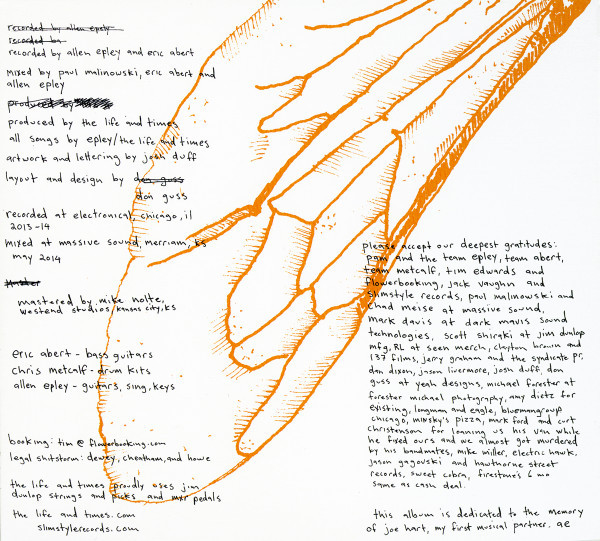 recorded by allen epely
recorded ba
recorded by allen epley and eric abert
mixed by paul malinowski, eric abert and
allen epley
produced by
produced by the life and times
all songs by epley/the life and times
artwork and lettering by josh duff
layout and design by don guss
don guss
recorded at electronical, chicago, il
2013-14
mixed at massive sound, merriam, ks
may 2014
master
mastered by mike nolte,
westend studios, kansas city, ks
eric abert - bass guitars
chris metcalf - drum kits
allen epley - guitars, sing, keys
booking: tim @ flowerbooking.com
legal shitstorm: dewey, cheatham, and howe
the life and times proudly uses jim
dunlop strings and picks and mxr pedals
the life and times.com
slimstylerecords.com
please accept our deepest gratitudes:
pam and the team epley, team abert,
team metcalf, tim edwards and
flowerbooking, jack vaughn and
slimstyle records, paul malinowski and
chad meise at massive sound,
mark davis at dark mavis sound
technologies, scott shiraki at jim dunlop
mfg, RL at seen merch, clayton brown and
137 films, jerry graham and the syndicate pr,
dan dixon, jason livermore, josh duff, don
guss at yeah designs, michael forester at
forester michael photography, amy dietz for
existing, longman and eagle, bluemangroup
chicago, mimsky's pizza, mark ford and curt
christenson for loaning us his van while
he fixed ours and we almost got murdered
by his bandmates, mike miller, electric hawk,
jason gagovski and hawthorne street
records, sweet cobra, firestone's 6 mo
same as cash deal.
this album is dedicated to the memory
of joe hart, my first musical partner. ae